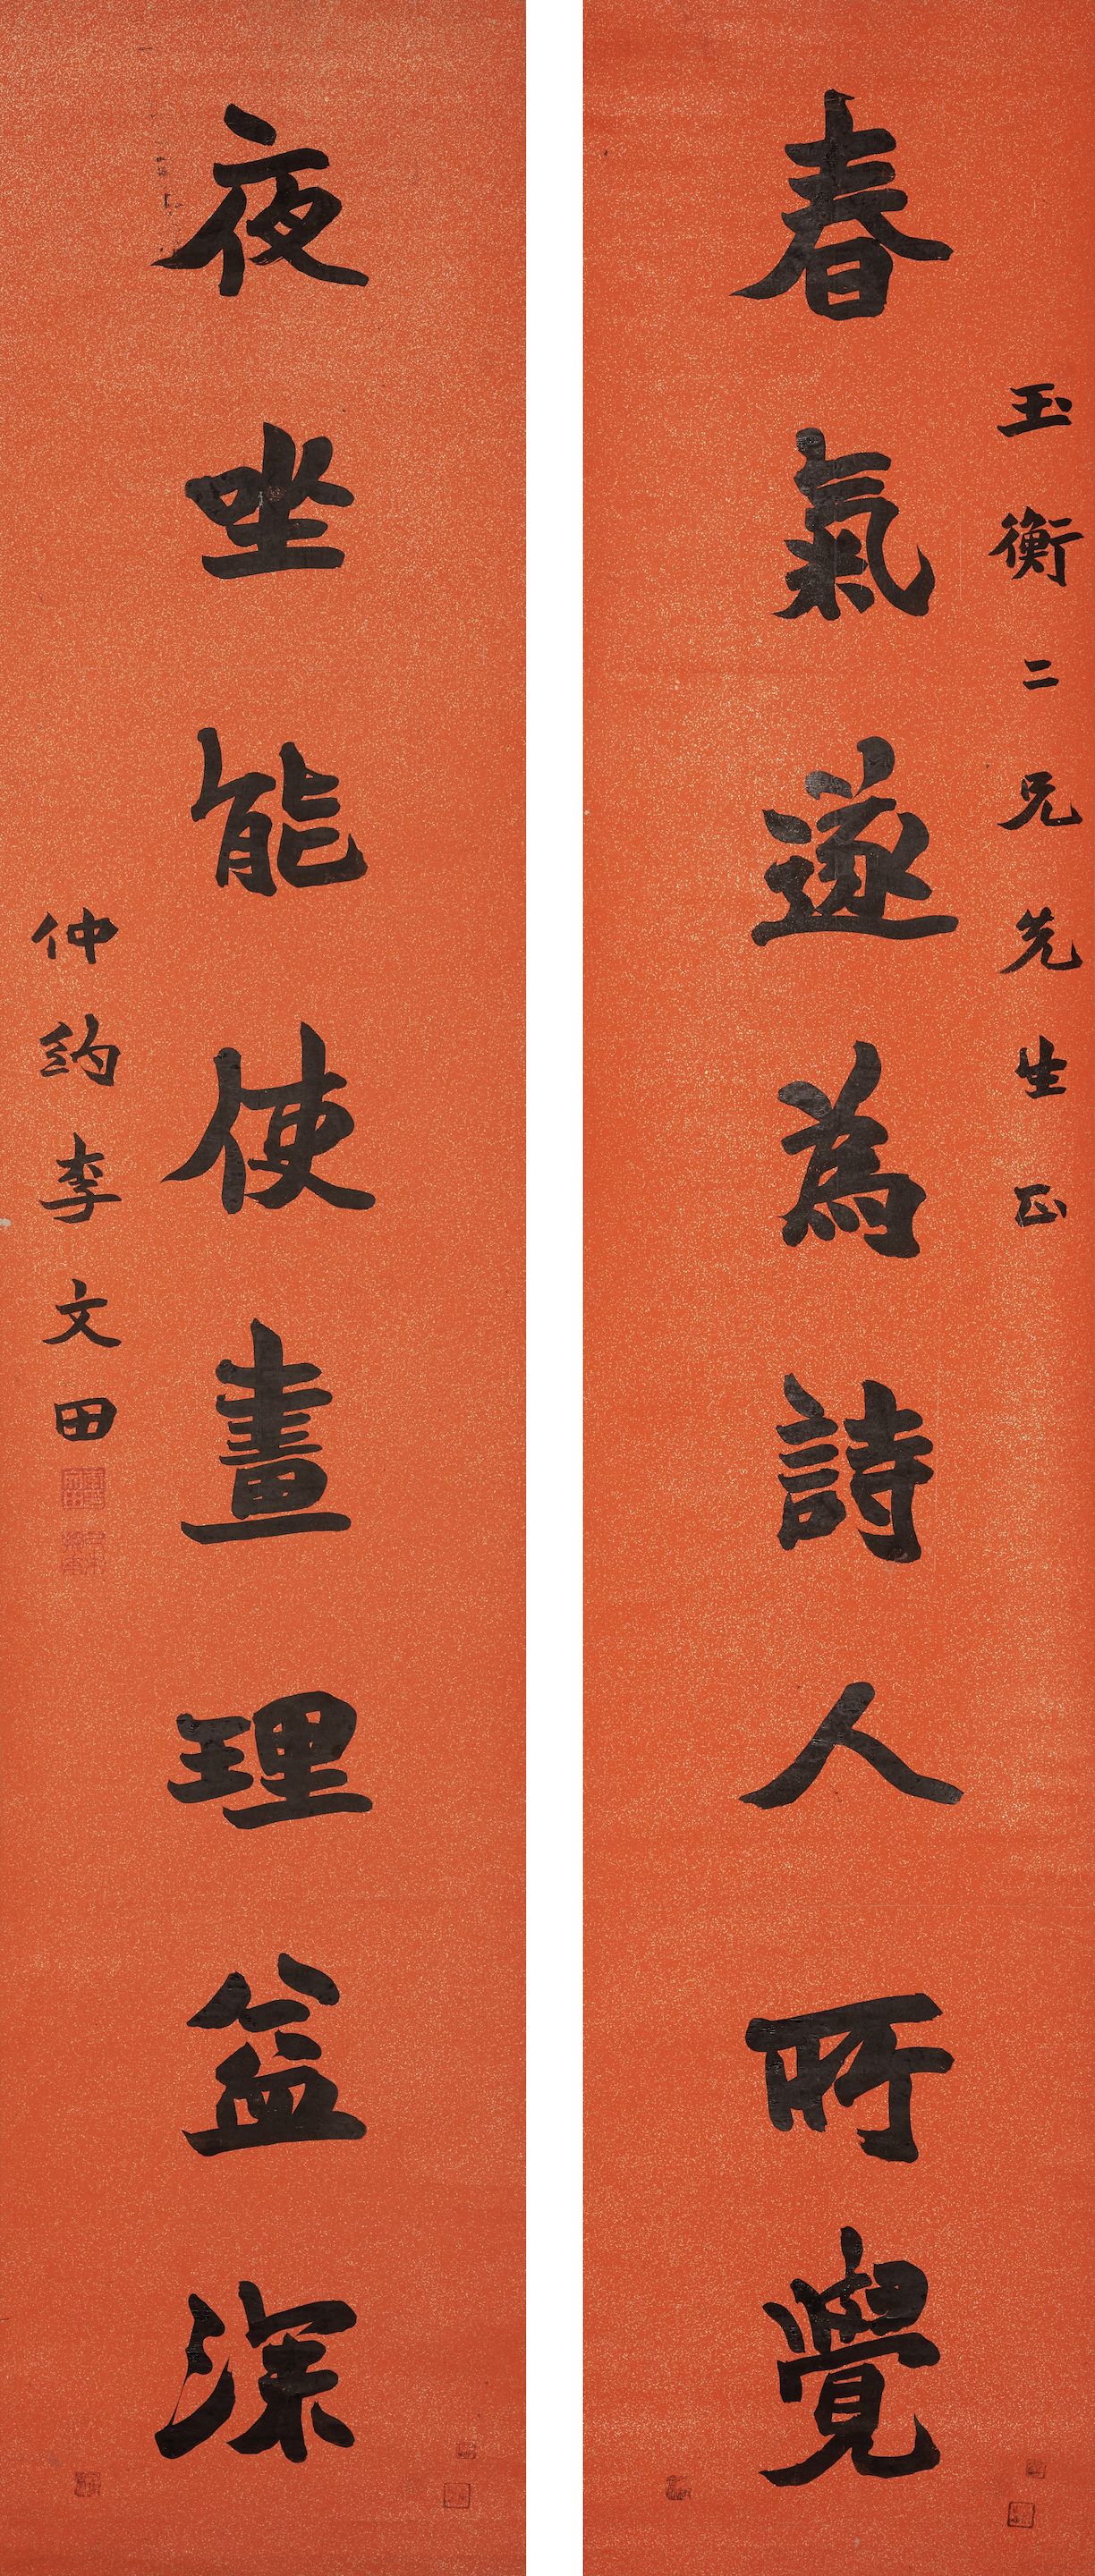 玉衡二兄先生正
春氣遂為詩人所覺
夜坐能使畫理益深
仲約李文田